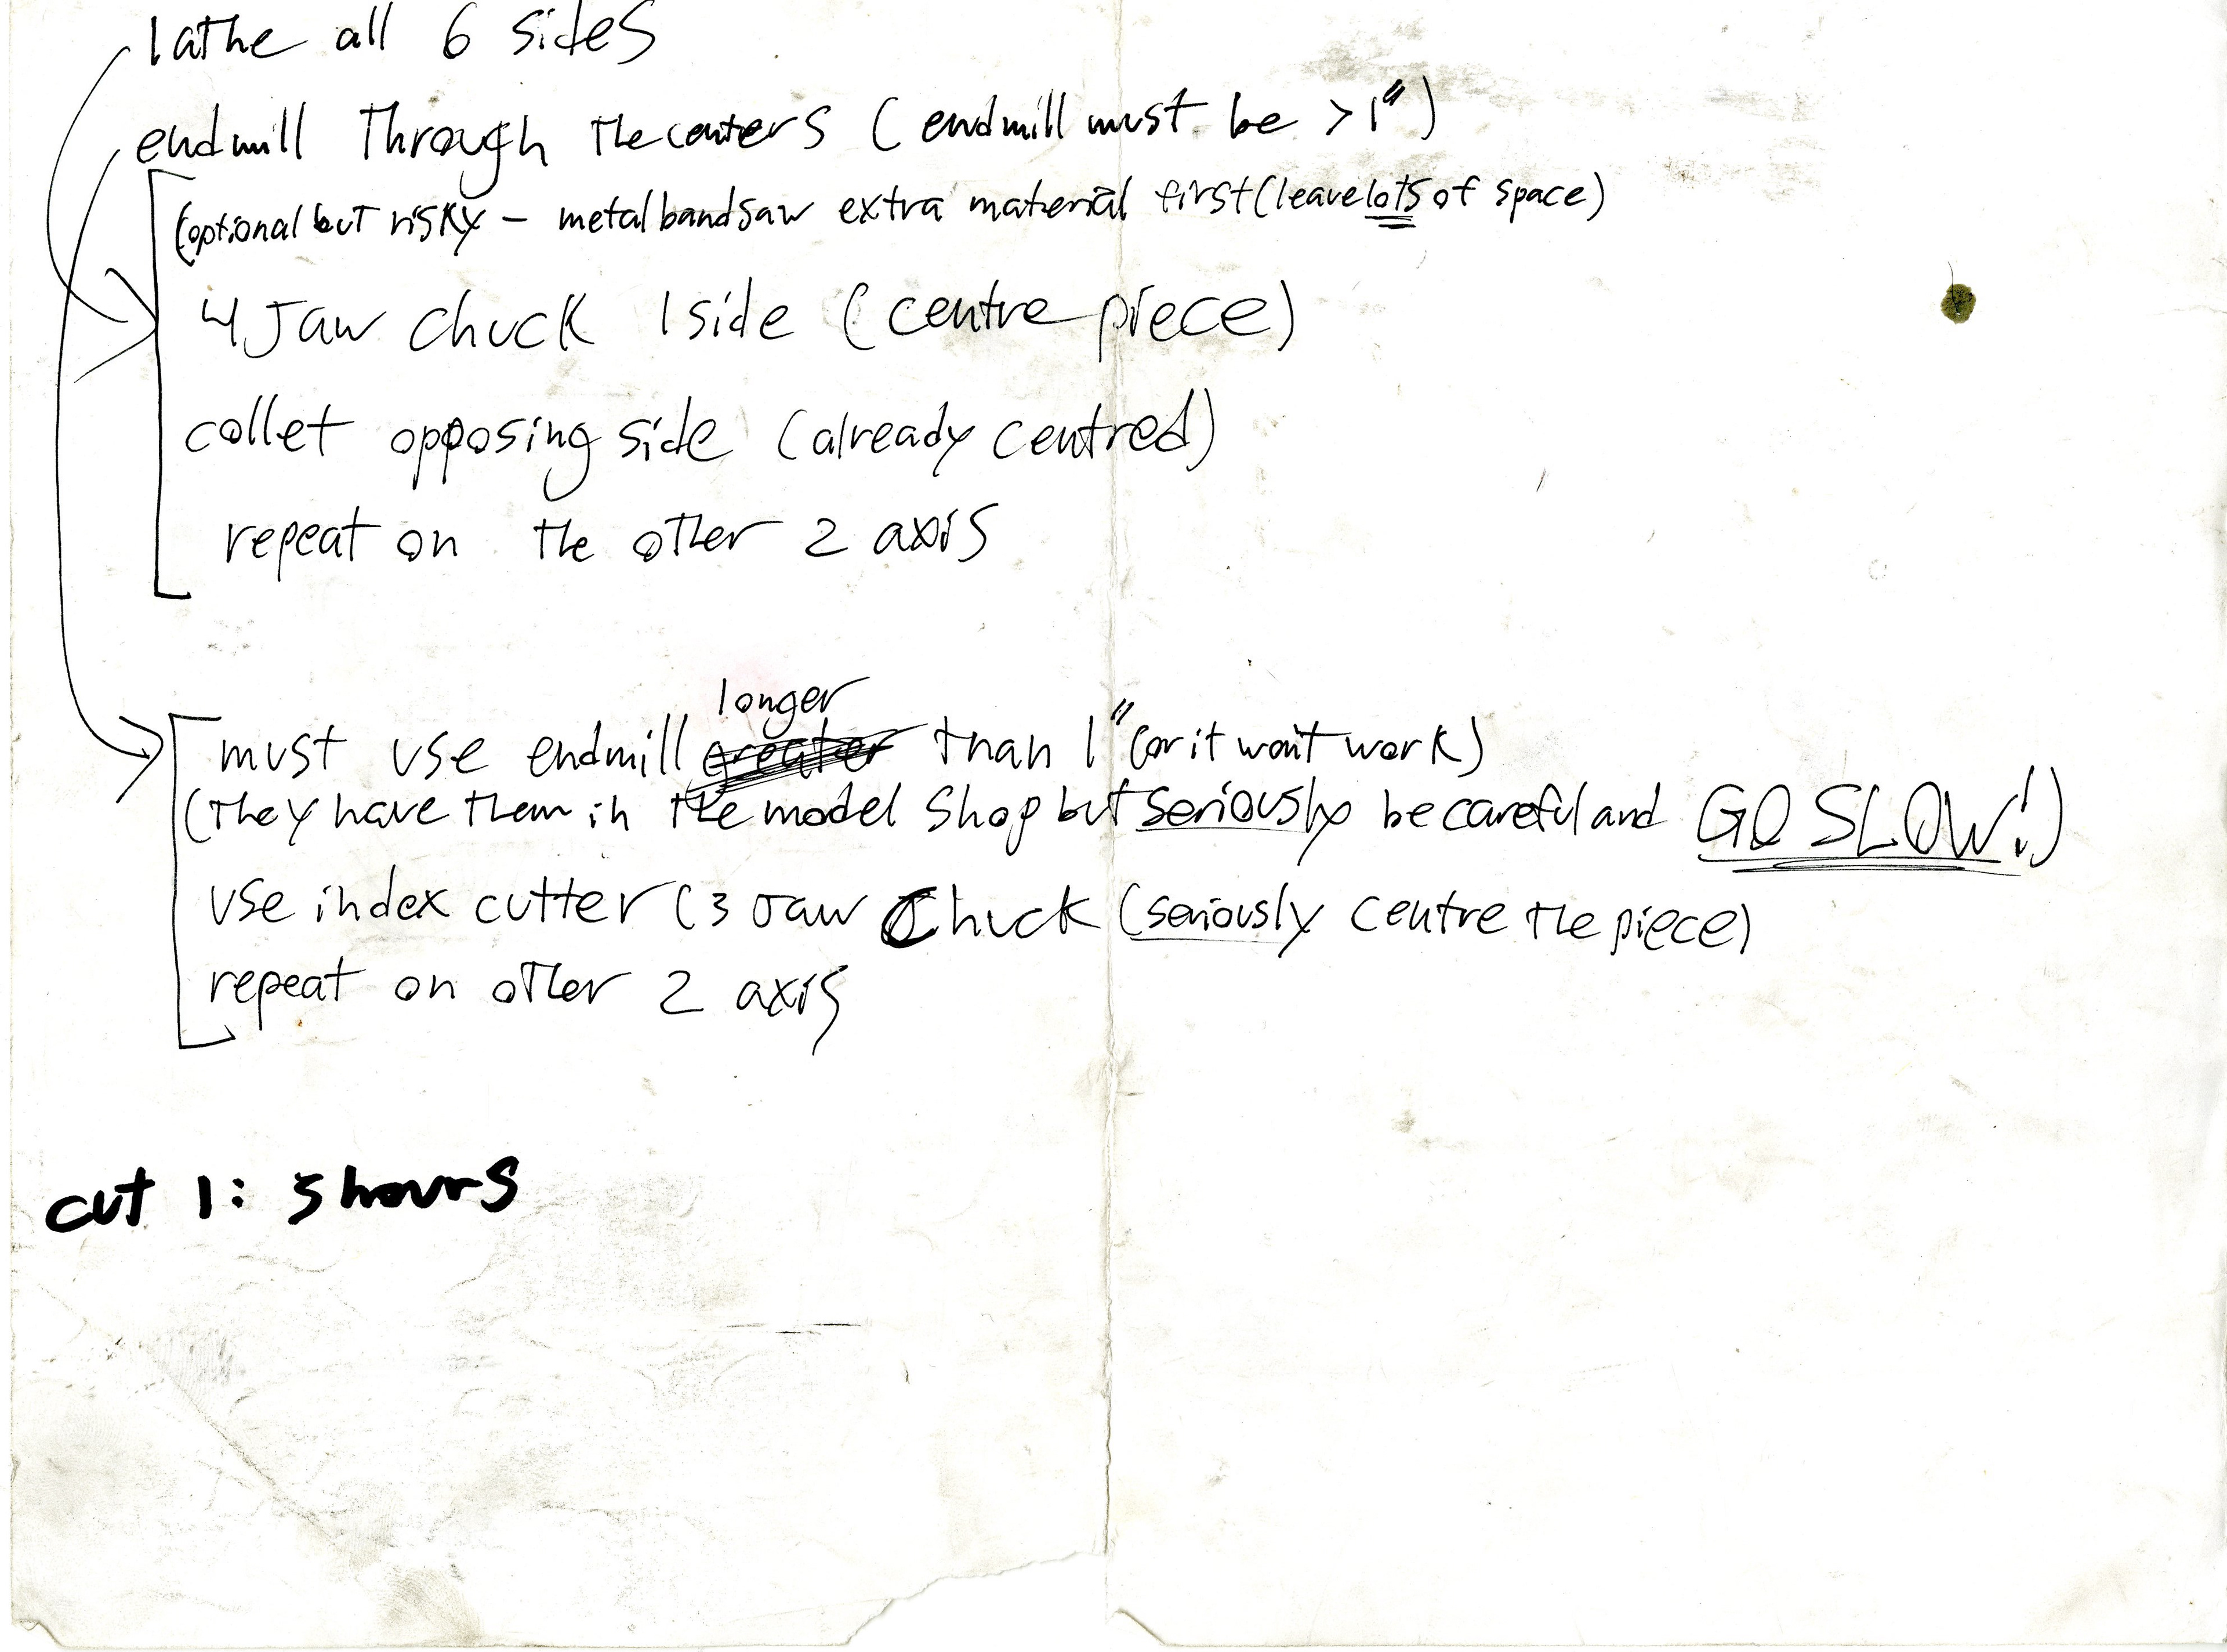 lathe all 6 sides
endmill through the centers (endmill must be >1")
(optional but risky - metal bandsaw extra material first (leave lots of space)
4 Jaw chuck 1 side (centre piece)
collet opposing side (already centred)
repeat on the other 2 axis
longer
must use endmill greater than 1" (or it won't work)
(they have them in the model shop but seriously be careful and GO SLOW!)
use index cutter (3 Jaw Chuck (seriously centre the piece)
repeat on other 2 axis
cut 1: 5 hours